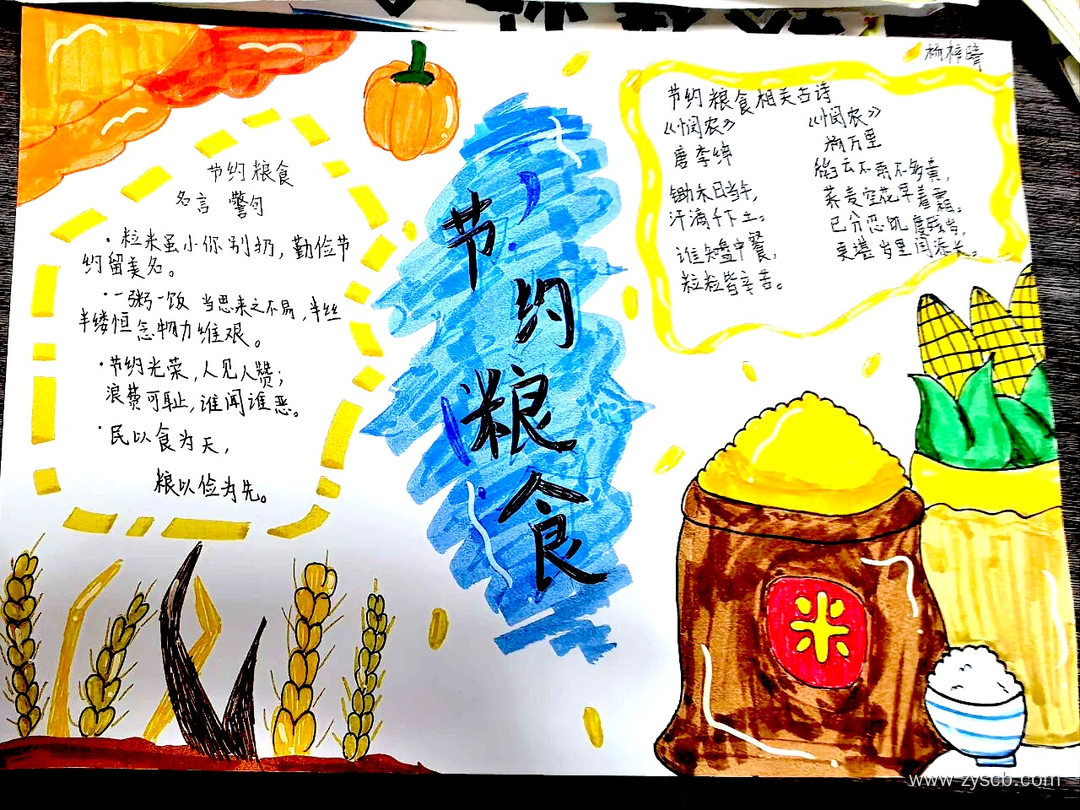 杨梓晴
节约粮食
名言 警句
·粒米虽小你别扔,勤俭节
约留美名。
·一粥一饭 当思来之不易,半丝
半缕恒念物力维艰。
·节约光荣,人见人赞;
浪费可耻,谁闻谁恶。
·民以食为天,
粮以俭为先。
节约粮食
节约粮食相关古诗
《悯农》
唐 李绅
锄禾日当午,
汗滴禾下土。
谁知盘中餐,
粒粒皆辛苦。
《悯农》
万里
云不雨不多黄,
荞麦空花早着霜。
已分忍饥度残岁,
更堪岁里闰添长。
米
www.zyscb.com